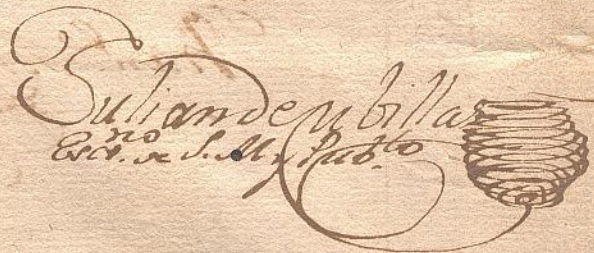 Julian de ubillas
Escr.no de S. M. y Pub.co